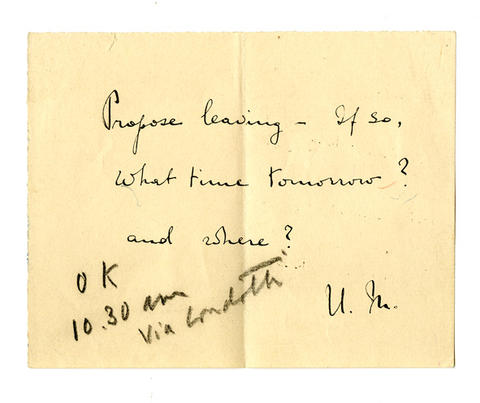 Propose leaving - If so,
What time tomorrow?
and where?
U. M.
OK
10.30 am
Via Condotti